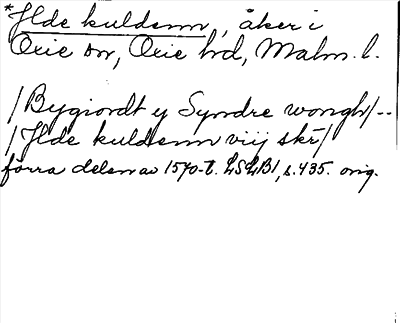 *Ilde kuldenn, åker i
Oxie sn, Oxie hd, Malm. l.
/Bygiordt y Syndre wongh/--
/Ilde kuldenn viij skr/
förra delen av 1570-t. LSLB1, s. 435. orig.